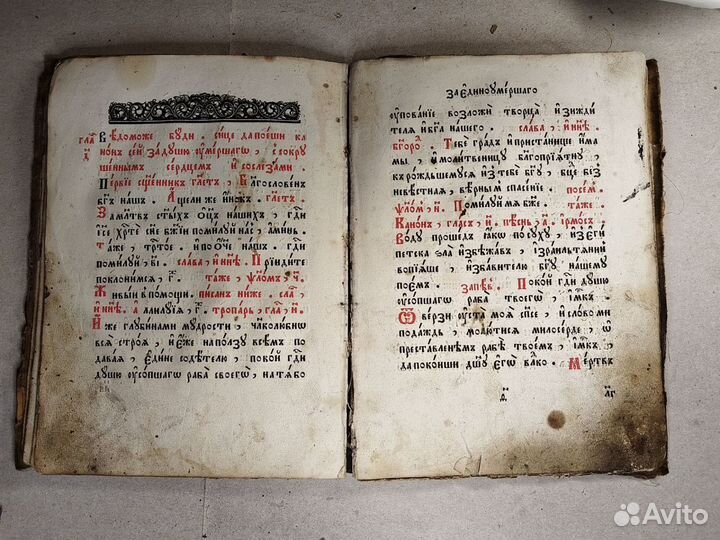 Вѣдоможе бꙋди . си́це да пое́ши ка
глава̀
но́нъ се́й за дꙋ́шꙋ ᲂу҆ме́ршагѡ , с̾ сокрꙋ
ше́ннымъ се́рдцемъ и҆ со слеза́ми .
Пе́рвїе сщ҃е́нникъ гл҃етъ , Блгⷭ҇ове́нъ
бг҃ъ на́шъ . А҆́ще ли же и҆́нокъ . гл҃етъ .
За мл҃твъ ст҃ы́хъ ѻ҆ц҃ъ на́шихъ , гдⷭ҇и
і҆се хрⷭ҇тѐ сн҃е бж҃їи поми́лꙋй на́съ , а҆ми́нь .
та́же , трⷭ҇то́е . и҆ по о҆́ч҃е на́шъ . гдⷭ҇и
поми́лꙋй , в҃і . сла́ва , и҆ нн҃ѣ . Прїиди́те
поклони́мсѧ , г҃ . та́же , ѱало́мъ , ч҃ .
Живы́и в̾ по́мощи . пи́санъ ни́же . сла́ва ,
и҆ нн҃ѣ . а҆ллилꙋ́їа , г҃ . тропа́рь , гла́съ , и҃ .
И҆́же глꙋбина́ми мꙋ́дрости , чл҃колю́бнѡ
всѧ̀ стро́ѧ , и҆ е҆́же на по́льзꙋ всѣ́мъ по
дава́ѧ , є҆ди́не содѣ́телю , поко́й гдⷭ҇и
дꙋ́шꙋ ᲂу҆со́пшагѡ раба̀ своегѡ̀ , на тѧ́ бо
За є҆ди́но ᲂу҆ме́ршаго
ᲂу҆пова́нїе возложѝ творца̀ и҆ зижди́
телѧ и҆ бг҃а на́шего . сла́ва , и҆ нн҃ѣ .
бг҃оро . Тебѐ гра́дъ и҆ приста́нище и҆ма
мы , и҆ моли́твенницꙋ блгопрїѧ́тнꙋ ,
къ ро́ждьшемꙋсѧ и҆з̾ тебѐ бг҃ꙋ , бц҃е без̾
невѣ́стнаѧ , вѣ́рнымъ спасе́нїе . посе́м̾
ѱало́м , н҃ . Поми́лꙋй мѧ̀ бж҃е . та́же .
Кано́нъ , гла́съ , и҃ . пѣ́снь , а҃ . і҆рмо́съ .
Во́дꙋ проше́дъ ꙗ҆́кѡ по сꙋ́хꙋ , и҆ з̾ е҆гѵ́
петска зла̀ и҆збѣжа́въ , і҆зра́ильтѧнинъ
вопїѧ́ше , и҆зба́вителю бг҃ꙋ на́шемꙋ
пое́мъ . запѣ́в . Поко́й гдⷭ҇и дꙋ́шꙋ
ᲂу҆со́пшаго раба̀ твоегѡ̀ , и҆́мкъ .
Ѿве́рзи ᲂу҆ста̀ моѧ̀ сп҃се , и҆ сло́во ми
пода́ждь , моли́тисѧ милосе́рде , ѡ҆
преста́вленѣмъ рабѣ̀ твое́мъ , и҆́мкъ ,
да поко́иши дш҃ꙋ є҆гѡ̀ влⷣко . Ме́ртвъ